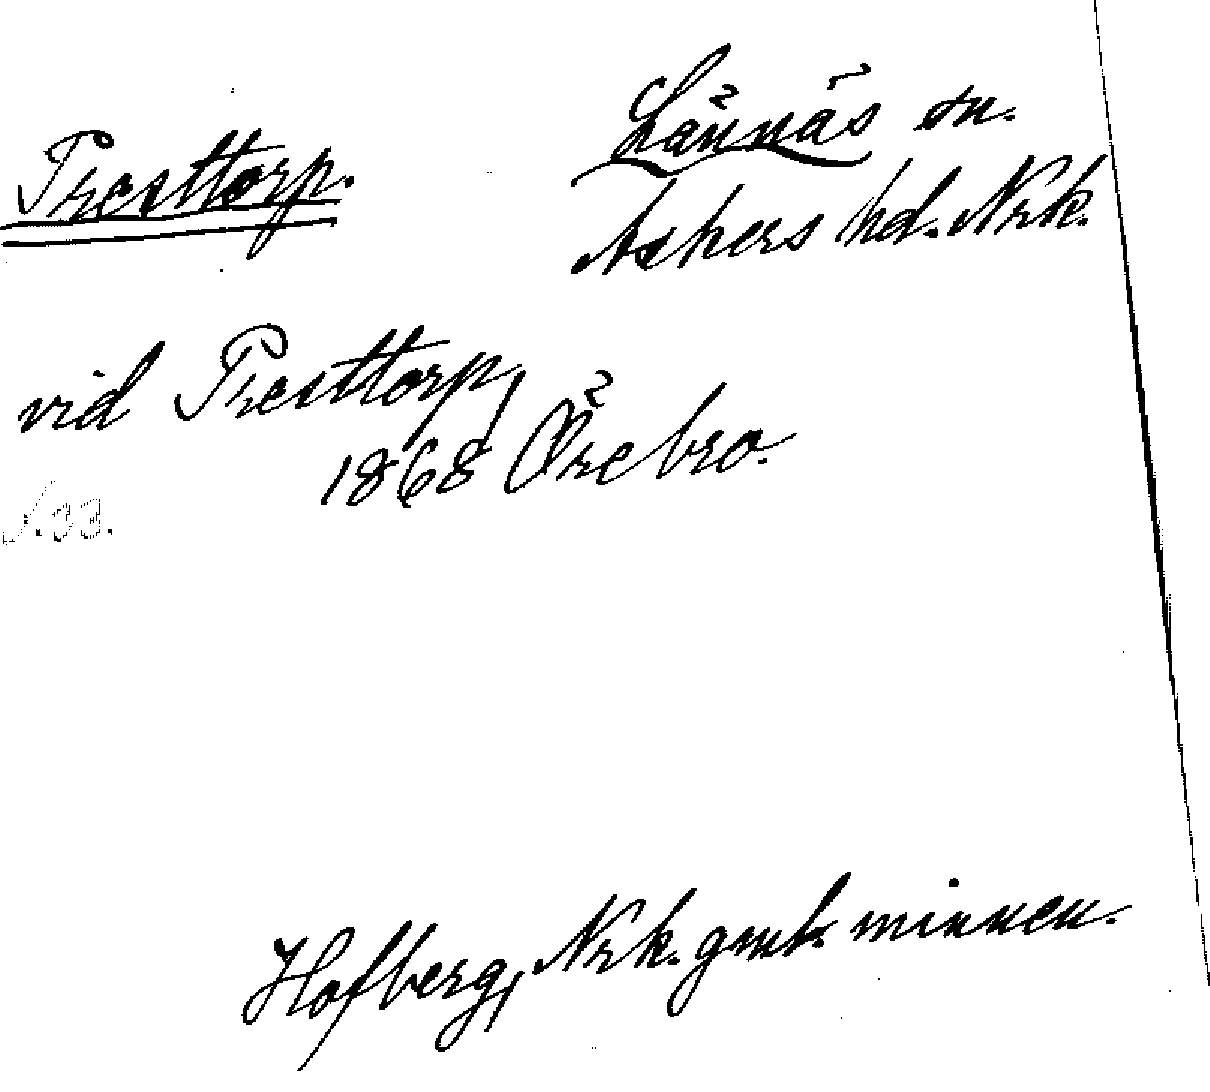 Presttorp.
Lännäs sn.
Askers hd. Nrk.
vid Presttorp,
1868 Örebro.
s. 33.
Hofberg, Nrk. gmla minnen.